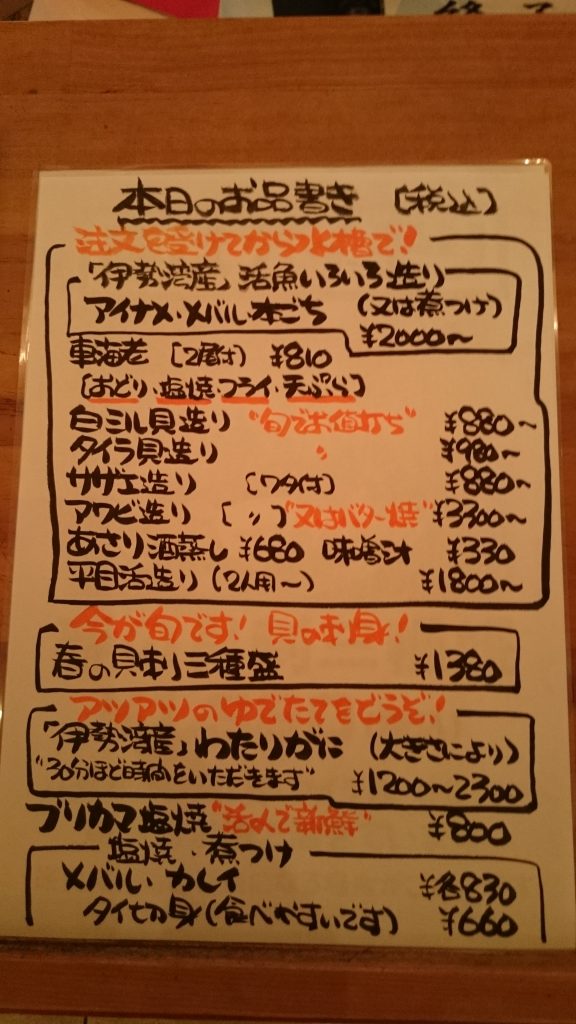 本日のお品書き [税込]
注文を受けてから水槽で!
「伊勢湾産」活魚いろいろ造り
アイナメ・メバル・本ごち (又は煮つけ)
¥2000〜
車海老 [2尾付] ¥810
[おどり・塩焼・フライ・天ぷら]
白ミル貝造り "旬でお値打ち" ¥880〜
タイラ貝造り 〃 ¥980〜
サザエ造り [ワタ付] ¥880〜
アワビ造り [〃] "又はバター焼" ¥3300〜
あさり酒蒸し ¥680 味噌汁 ¥330
平目活造り (2人用〜) ¥1800〜
今が旬です! 貝の刺身!
春の貝刺し三種盛 ¥1380
アツアツのゆでたてをどうぞ!
「伊勢湾産」わたりがに (大きさにより)
"30分ほど時間をいただきます" ¥1200〜2300
ブリカマ塩焼 "活〆で新鮮" ¥800
塩焼・煮つけ
メバル・カレイ ¥各830
タイ切身 (食べやすいです) ¥660